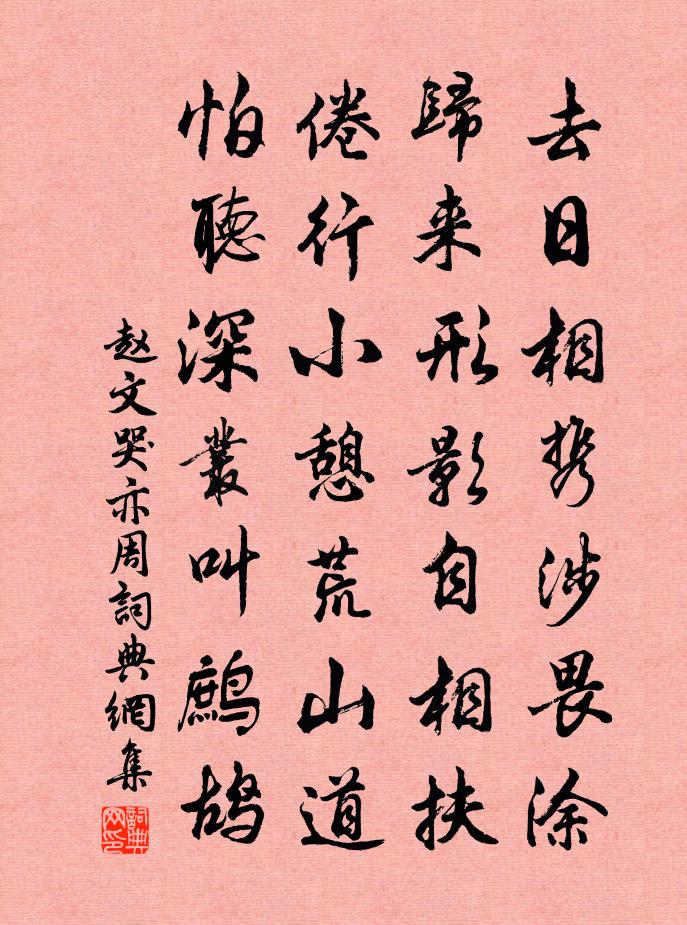 去日相携涉畏涂
歸来形影自相扶
倦行小憩荒山道
怕聽深叢叫鷓鴣
赵文哭亦周詞典網集
詞典网印